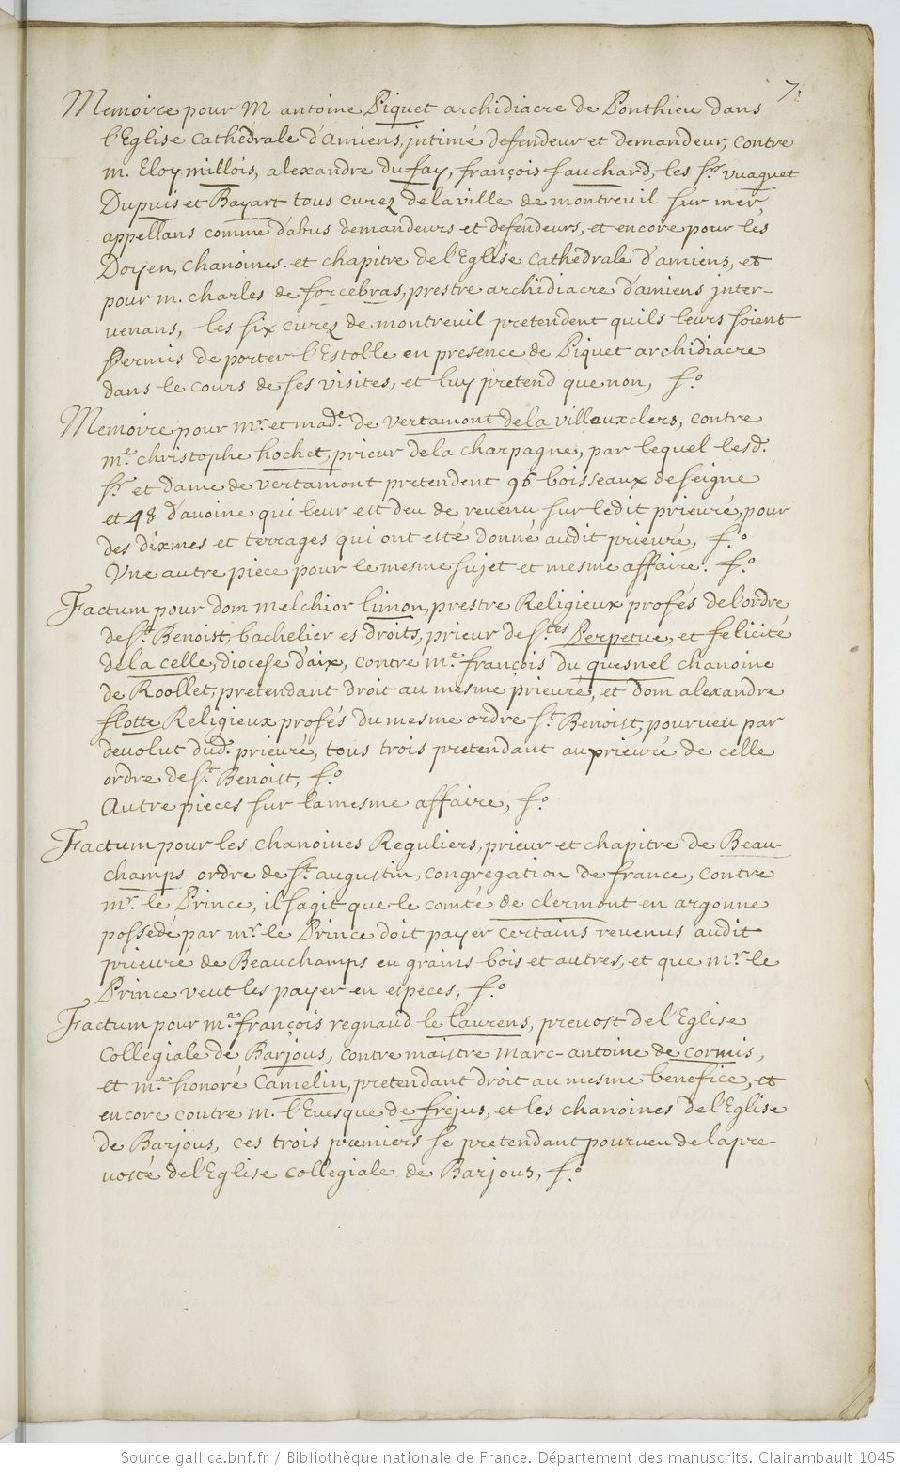 7.
Memoire pour M antoine Piquet archidiacre de Ponthieu dans
l'Eglise cathedrale d'Amiens, intimé defendeur et demandeur, contre
m. Eloy millois, alexandre du fay, françois fauchard, les Srs vuaquet
Dupuis et Bayart tous curez de la ville de montreuil sur mer,
appellans comme d'abus demandeurs et defendeurs, et encore pour les
Doyen, chanoines et chapitre de l'Eglise cathedrale d'amiens, et
pour m. charles de forcebras, prestre archidiacre d'amiens inter-
venans, les six curez de montreuil pretendent qu'ils leurs soient
permis de porter l'Estolle en presence de Piquet archidiacre
dans le cours de ses visites, et luy pretend que non, fo.
Memoire pour mr. et made. de vertamont de la villeuxclers, contre
me. christophe hochet, prieur de la charpagne, par lequel lesd.
Sr. et dame de vertamont pretendent 96 boisseaux de seigne
et 48 d'avoine qui leur est deu de revenu sur ledit prieuré, pour
des dixmes et terrages qui ont esté donné audit prieuré, fo.
Une autre piece pour le mesme sujet et mesme affaire. fo.
Factum pour dom melchior limon, prestre Religieux profés de l'ordre
de St. Benoist, bachelier es droits, prieur de Stes Perpetue, et felicité
de la celle, diocese d'aix, contre me. françois du quesnel chanoine
de Roollet, pretendant droit au mesme prieuré, et dom alexandre
flotte Religieux profés du mesme ordre St. Benoist, pourveu par
devolut dud. prieuré, tous trois pretendant au prieuré de celle
ordre de St. Benoist, fo.
Autre pieces sur la mesme affaire, fo.
Factum pour les chanoines Reguliers, prieur et chapitre de Beau-
champs ordre de St. augustin, congregation de france, contre
mr. le Prince, il s'agit que le comté de clermont en argonne
possedé par mr. le Prince doit payer certains revenus audit
prieuré de Beauchamps en grains bois et autres, et que mr. le
Prince veut les payer en especes, fo.
Factum pour me. françois regnaud le laurens, prevost de l'Eglise
collegiale de Barjous, contre maistre marc-antoine de cormis,
et me. honoré Camelin, pretendant droit au mesme benefice, et
encore contre m. l'Evesque de frejus, et les chanoines de l'Eglise
de Barjous, ces trois premiers se pretendant pourveu de la pre-
vosté de l'Eglise collegiale de Barjous, fo.
Source gallica.bnf.fr / Bibliothèque nationale de France. Département des manuscrits. Clairambault 1045